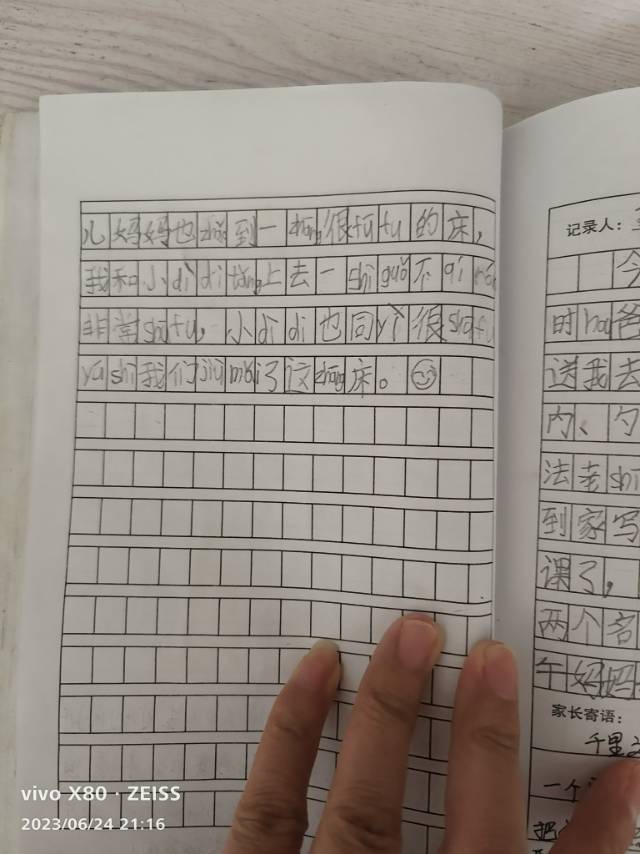 儿妈妈也zhǎo到一zhāng很fú fu的床，
我和小dì di tǎng上去一shì guǒ
非常shū fu，小dì di也同yì很shū fu
yú shì我们jiù mǎi了这zhāng床。
记录人：
今
送我去
内、勺
法老shī
到家写
课了，
两个客
午妈妈
家长寄语：
千里
一个
vivo X80 · ZEISS
2023/06/24 21:16